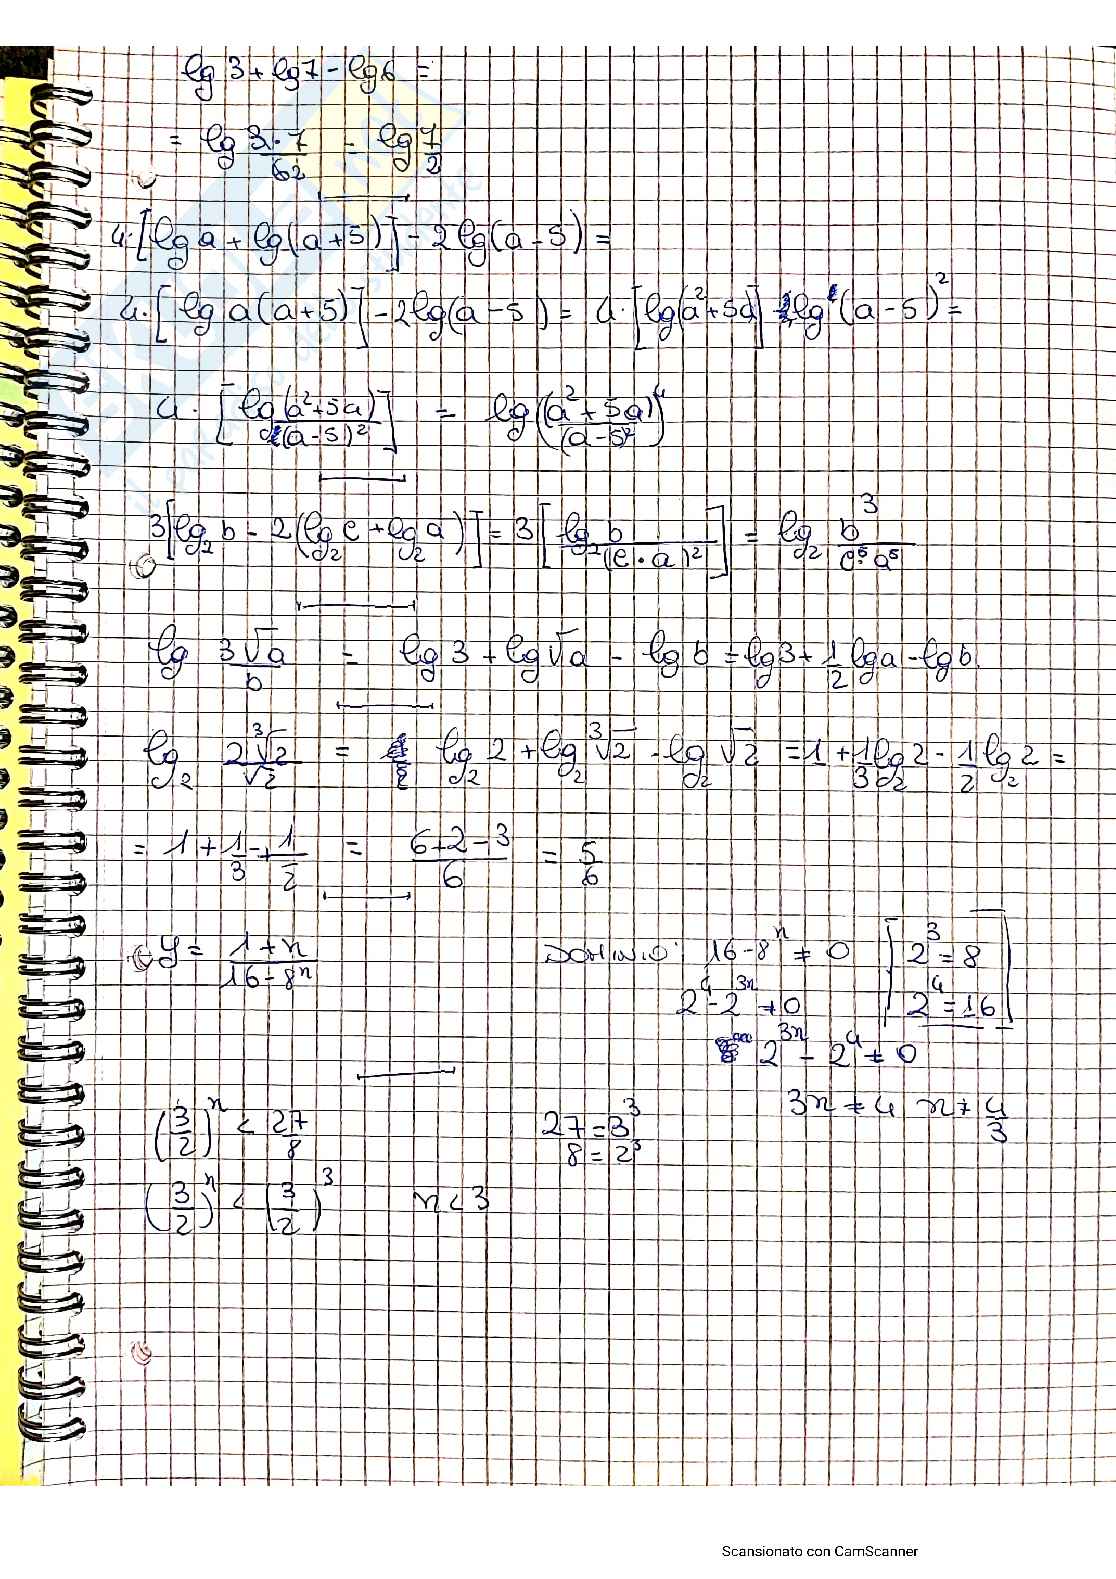 lg 3 + lg 7 - lg 6 =
= lg 3·7/62 = lg 7/2
4·[lg a + lg(a+5)] - 2 lg(a-5) =
4·[lg a(a+5)] - 2 lg(a-5) = 4·[lg(a²+5a)] - lg(a-5)² =
4·[lg(a²+5a)/(a-5)²] = lg((a²+5a)/(a-5)²)⁴
3[lg₂ b - 2(lg₂ c + lg₂ a)] = 3[lg₂ b/(c·a)²] = lg₂ b³/c⁵·a⁵
lg 3√a/b = lg 3 + lg √a - lg b = lg 3 + 1/2 lg a - lg b
lg₂ 2∛2/√2 = lg₂ 2 + lg₂ ∛2 - lg₂ √2 = 1 + 1/3 lg₂ 2 - 1/2 lg₂ 2 =
= 1 + 1/3 - 1/2 = 6+2-3/6 = 5/6
y = 1+x/16-8ˣ DOMINIO: 16-8ˣ ≠ 0 [2³ = 8
2⁴-2³ˣ ≠ 0 2⁴ = 16]
2³ˣ - 2⁴ ≠ 0
3x ≠ 4 x ≠ 4/3
(3/2)ˣ < 27/8 27 = 3³
8 = 2³
(3/2)ˣ < (3/2)³ x < 3
Scansionato con CamScanner